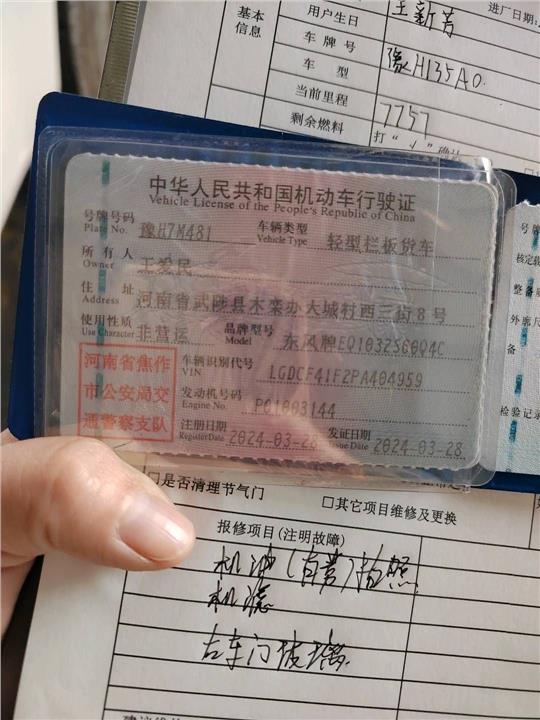 基本
信息
用户生日
王新芳
进厂日期:
车牌号
豫H135A0
车型
当前里程
7757
剩余燃料
打“√”确认
中华人民共和国机动车行驶证
Vehicle License of the People's Republic of China
号牌号码 豫H7M481 车辆类型 轻型栏板货车
Plate No. Vehicle Type
所有人 王爱民
Owner
住址 河南省武陟县木栾办大城村西三街8号
Address
使用性质 非营运 品牌型号 东风牌EQ1032SG0Q4C
Use Character Model
河南省焦作
市公安局交
通警察支队
车辆识别代号 LGDCF41F2PA404959
VIN
发动机号码 P01003144
Engine No.
注册日期 2024-03-28 发证日期 2024-03-28
Register Date Issue Date
号牌
核定载
整备质
外廓尺
备
检验记录
□是否清理节气门
□其它项目维修及更换
报修项目(注明故障)
机油(自带)拍照
机滤
左车门玻璃